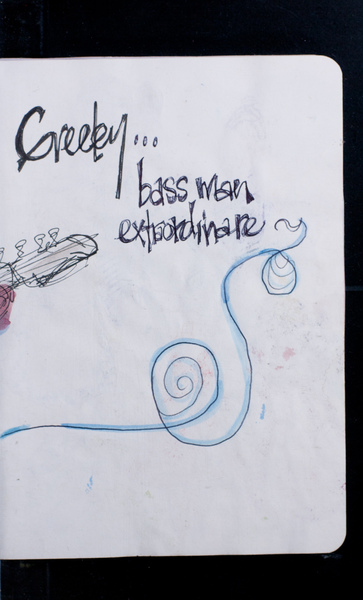 Creeky...
bass man
extraordinare